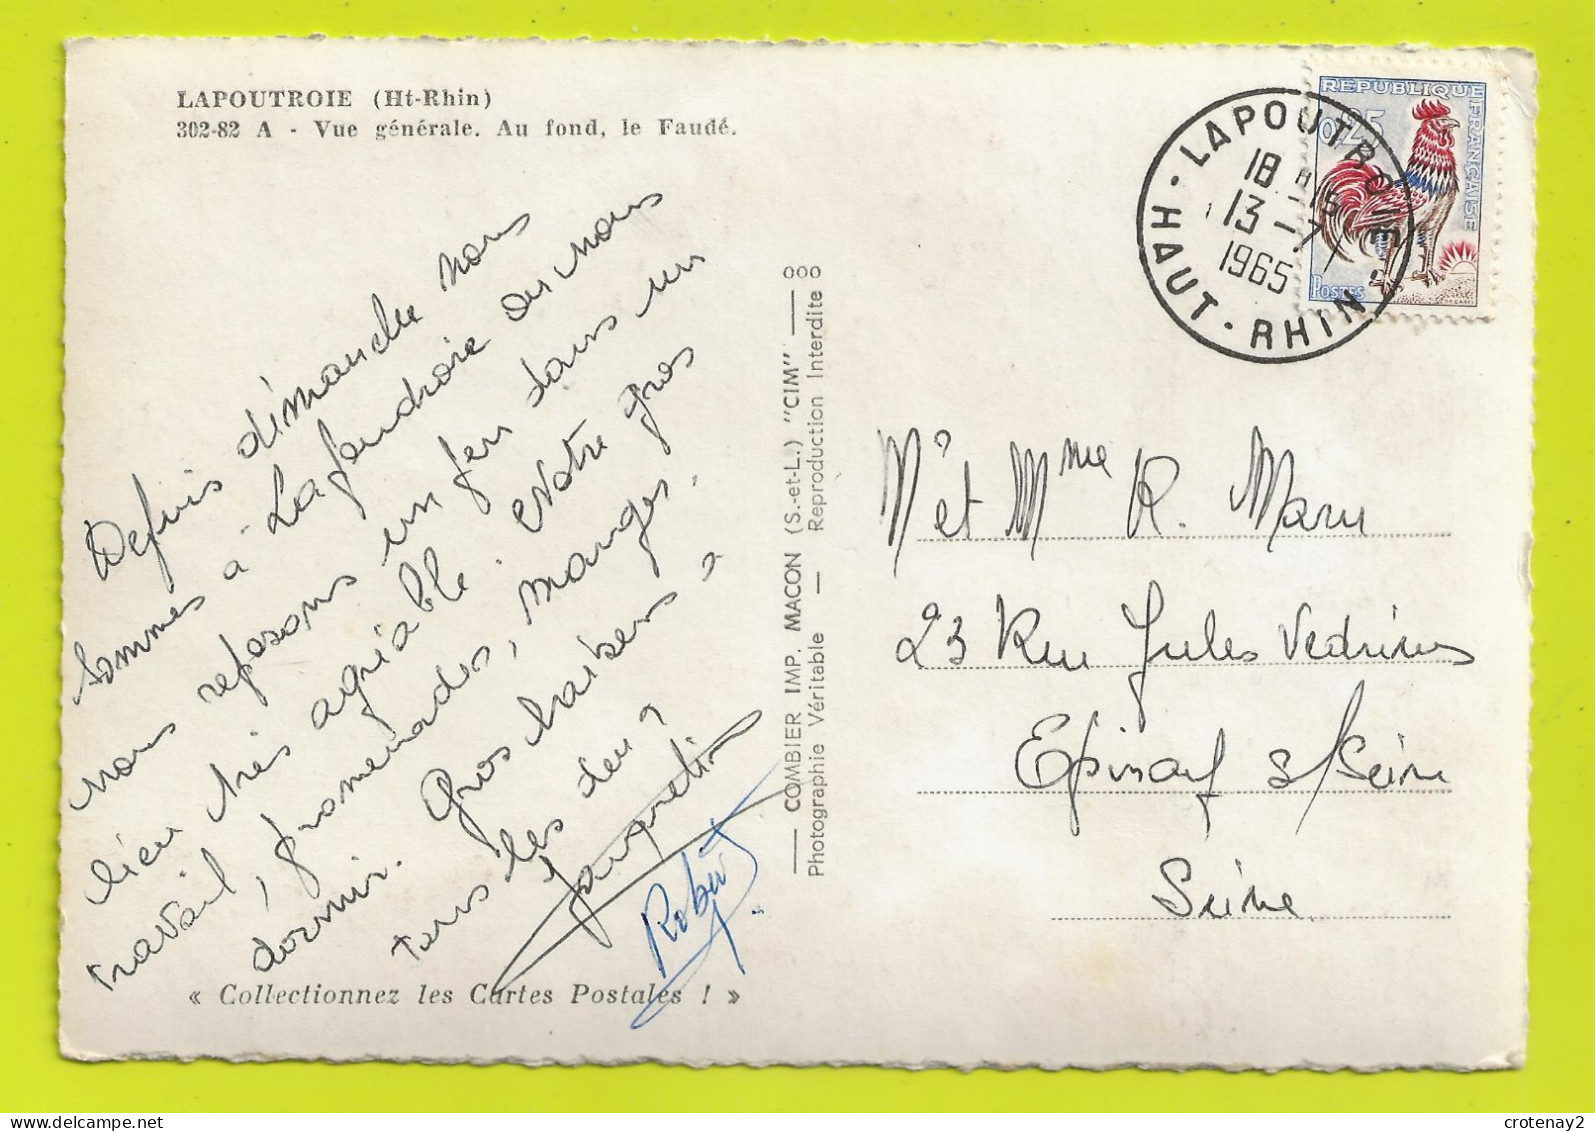 LAPOUTROIE (Ht-Rhin)
302-82 A - Vue générale. Au fond, le Faudé.
Depuis dimanche nous
sommes à Lapoutroie où nous
nous reposons un peu dans un
lieu très agréable. Notre gros
travail, promenades, manger,
dormir. Gros baisers à
tous les deux
Robert
« Collectionnez les Cartes Postales ! »
COMBIER IMP. MACON (S.-et-L.) "CIM" 000
Photographie Véritable — Reproduction Interdite
LAPOUTROIE
18 H 15
13 - 7
1965
HAUT - RHIN
REPUBLIQUE FRANÇAISE
0,25
POSTES
DECARIS
Mr et Mme R. Maru
23 Rue Jules Vedrines
Epinay s/Seine
Seine
crotenay2